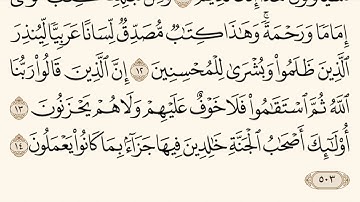 إِمَامًا وَرَحْمَةً ۚ وَهَٰذَا كِتَٰبٌ مُّصَدِّقٌ لِّسَانًا عَرَبِيًّا لِّيُنذِرَ
ٱلَّذِينَ ظَلَمُوا۟ وَبُشْرَىٰ لِلْمُحْسِنِينَ ١٢ إِنَّ ٱلَّذِينَ قَالُوا۟ رَبُّنَا
ٱللَّهُ ثُمَّ ٱسْتَقَٰمُوا۟ فَلَا خَوْفٌ عَلَيْهِمْ وَلَا هُمْ يَحْزَنُونَ ١٣
أُو۟لَٰٓئِكَ أَصْحَٰبُ ٱلْجَنَّةِ خَٰلِدِينَ فِيهَا جَزَآءًۢ بِمَا كَانُوا۟ يَعْمَلُونَ ١٤
٥٠٣